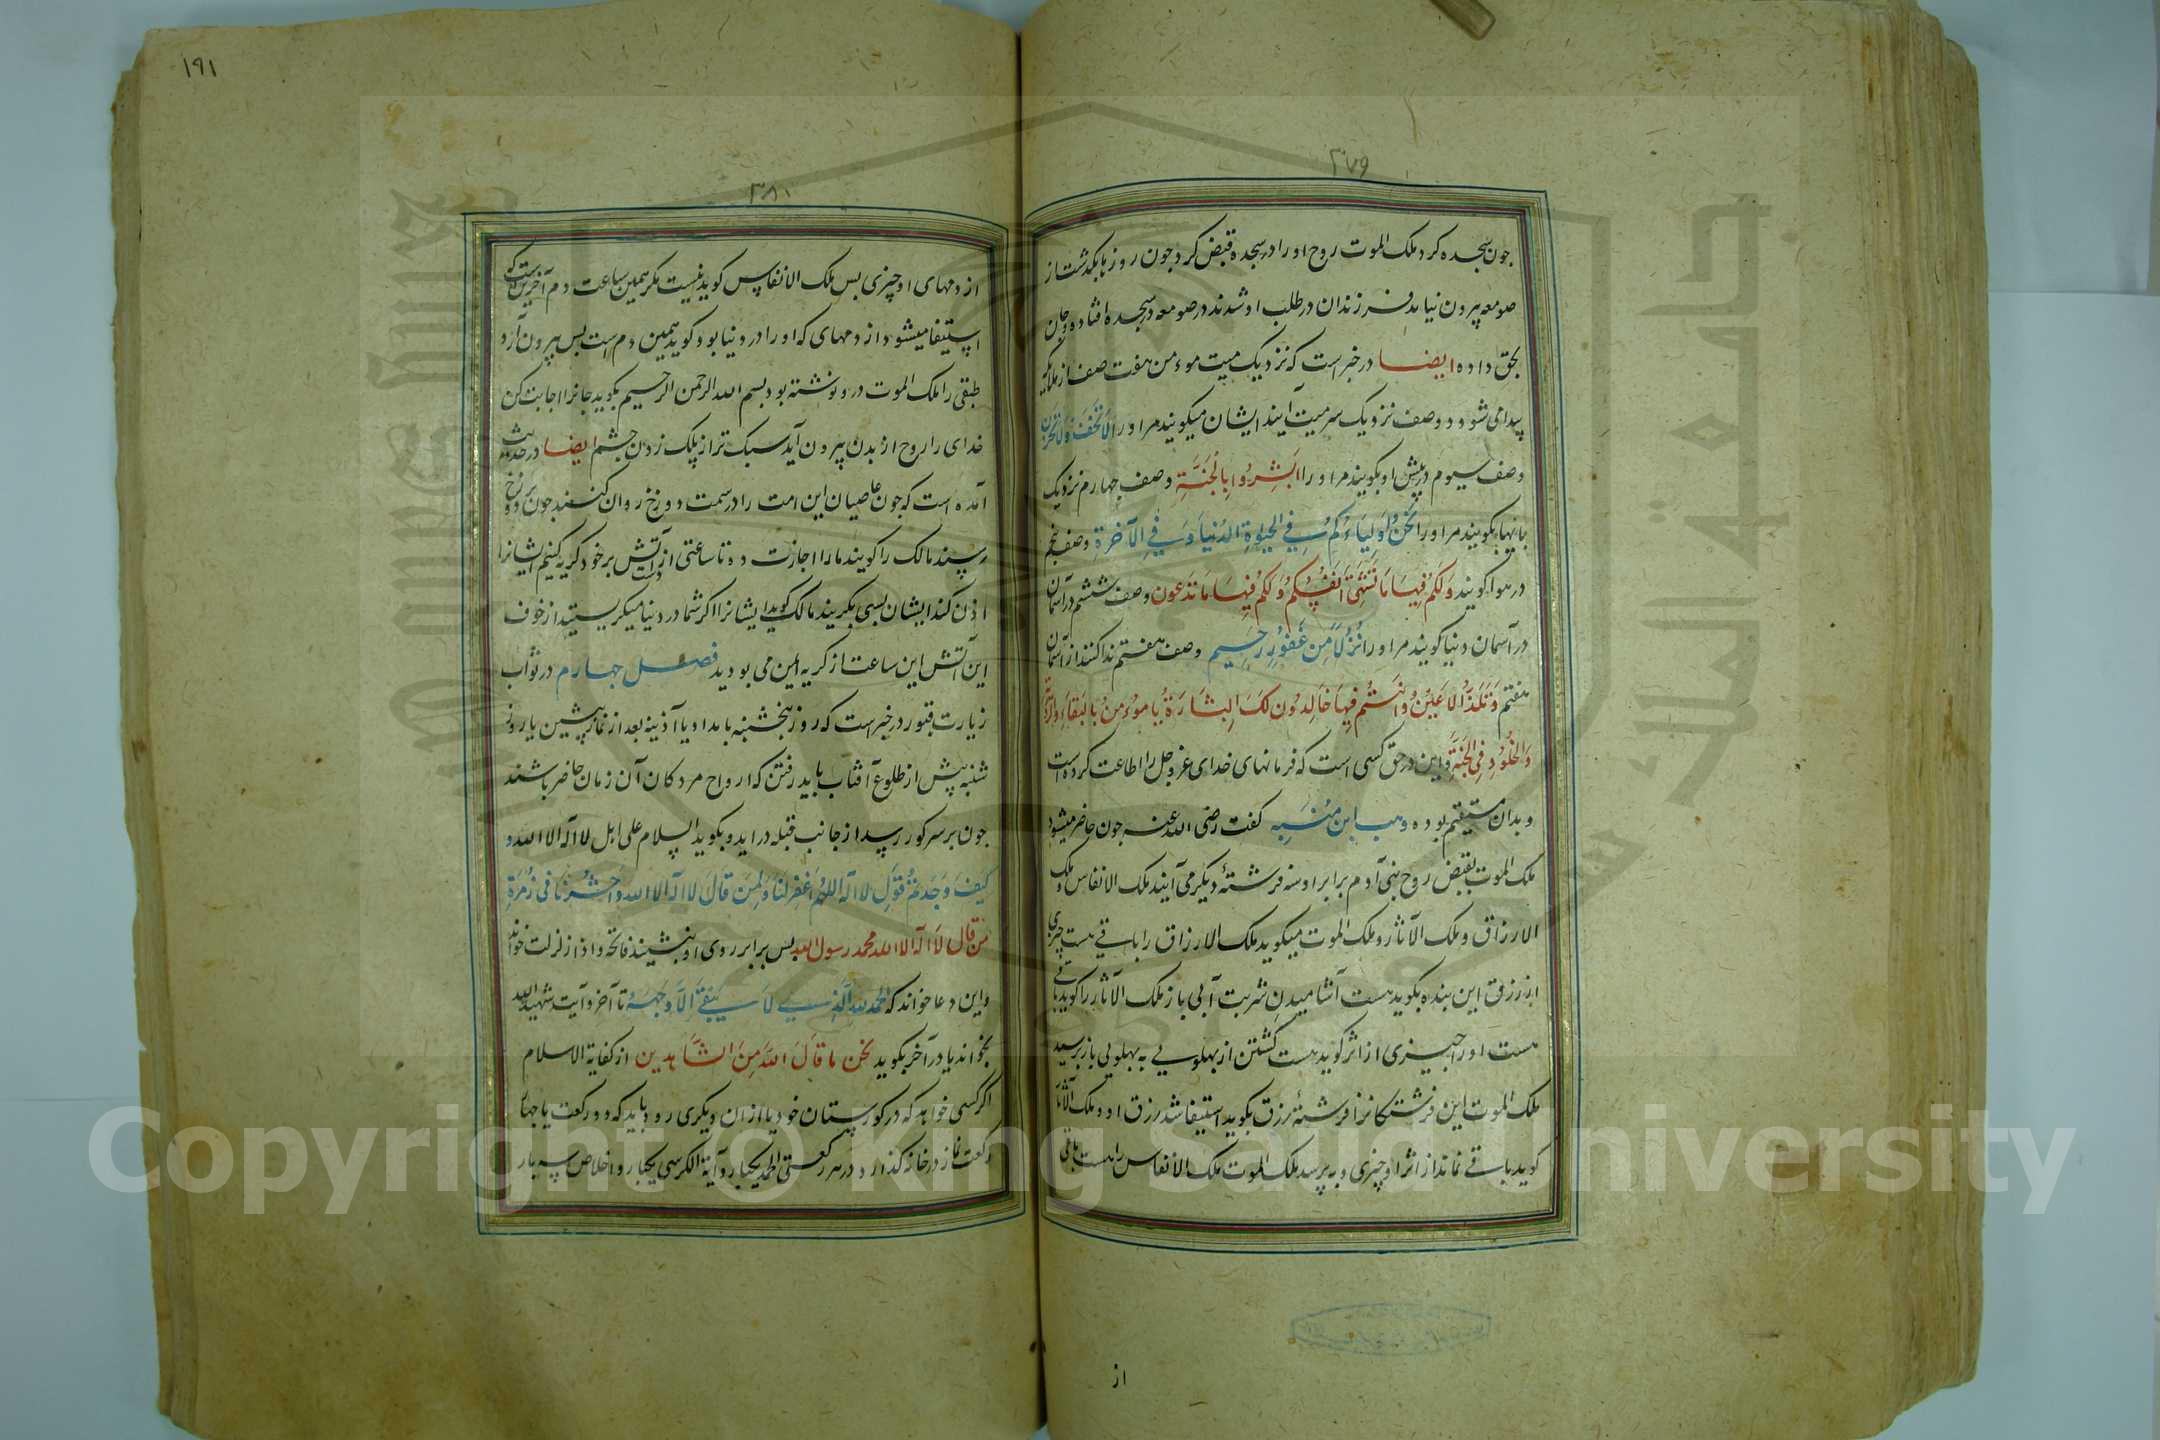 ۳۷۹
جون سجده کرد ملک الموت روح او را در سجده قبض کرد جون روزها بکذشت از
صومعه بیرون نیامد فرزندان در طلب او شدند در صومعه در سجده افتاده و جان
بحق داده ایضا در خبر است که نزدیک میت موءمن هفت صف از ملایکه
پیدا می شود و صف نزدیک سر میت آیند ایشان میکویند مر او را لاتخف ولاتحزن
و صف سیوم در پیش او بکویند مر او را ابشروا بالجنة و صف جهارم نزدیک
بکویند مر او را نحن اولیاءکم فی الحیوة الدنیا و فی الآخرة و صف پنجم
در هوا کویند ولکم فیها ما تشتهی انفسکم ولکم فیها ما تدعون و صف ششم در آسمان
در آسمان دنیا کویند مر او را نزلا من غفور رحیم و صف هفتم ندا کنند از آسمان
هفتم وتلذ الاعین وانتم فیها خالدون لک البشارة یا موءمن بالبقاء
والخلود فی الجنة و این در حق کسی است که فرمانهای خدای عز و جل را اطاعت کرده است
و بدان مستقیم بوده وهب ابن منبه کفت رضی الله عنه جون حاضر میشود
ملک الموت بقبض روح بنی آدم برابر او سه فرشتهٔ دیکر می آیند ملک الانفاس و ملک
الارزاق و ملک الآثار و ملک الموت میکوید ملک الارزاق را باقی هست چیزی
از رزق این بنده بکوید هست آشامیدن شربت آبی باز ملک الآثار را کوید باقی
هست او را چیزی از اثر کوید هست کشتن از پهلویی به پهلویی باز پرسید
ملک الموت این فرشتکانرا فرشتهٔ رزق بکوید استیفا شد رزق او و ملک الآثار
کوید باقی نماند از اثر او چیزی و به پرسد ملک الموت ملک الانفاس را هست باقی
از
۱۹۱
۳۸۱
از دمهای او چیزی بس ملک الانفاس کوید نیست مکر همین ساعت دم آخرین است که
استیفا میشود از دمهای که او را در دنیا بود کوید همین دم است بس بیرون آرد
طبقی را ملک الموت در و نوشته بود بسم الله الرحمن الرحیم بکوید جانرا اجابت کن
خدای را روح از بدن بیرون آید سبک تر از پلک زدن جشم ایضا در حدیث
آمده است که جون عاصیان این امت را در سمت دوزخ روان کنند جون در دوزخ
رسند مالک را کویند ما را اجازت ده تا ساعتی از آتش بر خود کریه کنیم ایشانرا
اذن کند ایشان بسی بکریند مالک کوید ایشانرا اکر شما در دنیا میکریستید از خوف
این آتش این ساعت از کریه ایمن می بودید فصل جهارم در ثواب
زیارت قبور در خبر است که روز پنجشنبه بامداد یا آذینه بعد از نماز پیشین یا روز
شنبه پیش از طلوع آفتاب باید رفتن که ارواح مردکان آن زمان حاضر باشند
جون بر سر کور رسد از جانب قبله در اید و بکوید السلام علی اهل لا اله الا الله و
کیف وجدتم قول لا اله اللهم اغفر لنا ولمن قال لا اله الا الله واحشرنا فی زمرة
من قال لا اله الا الله محمد رسول الله بس برابر روی او بنشیند فاتحه و اذا زلزلت خواند
و این دعا خواند که الحمد لله الذی لا یبقی الا وجهه تا آخر و آیت شهید الله
بخواند یا در آخر بکوید نحن ما قال الله من الشاهدین از کفایة الاسلام
اکر کسی خواهد که در کورستان خود یا از ان دیکری رود باید که دو رکعت یا جهار
رکعت نماز در خانه کذارد و در هر رکعتی الحمد یکبار و آیة الکرسی یکبار و اخلاص سه بار
Copyright © King Saud University